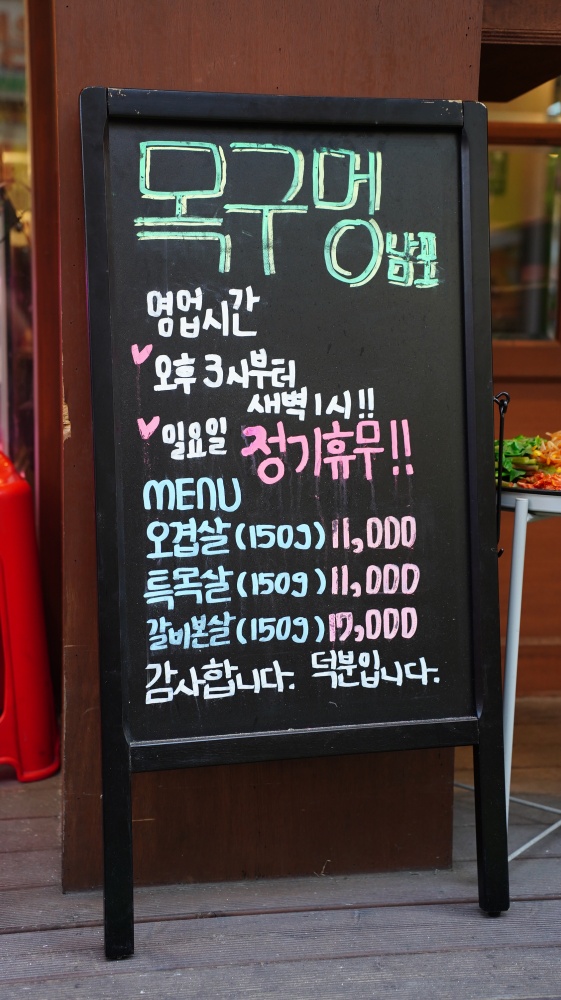 목구멍 남포
영업시간
오후 3시부터
새벽 1시!!
일요일 정기휴무!!
MENU
오겹살 (150g) 11,000
특목살 (150g) 11,000
갈비본살 (150g) 17,000
감사합니다. 덕분입니다.